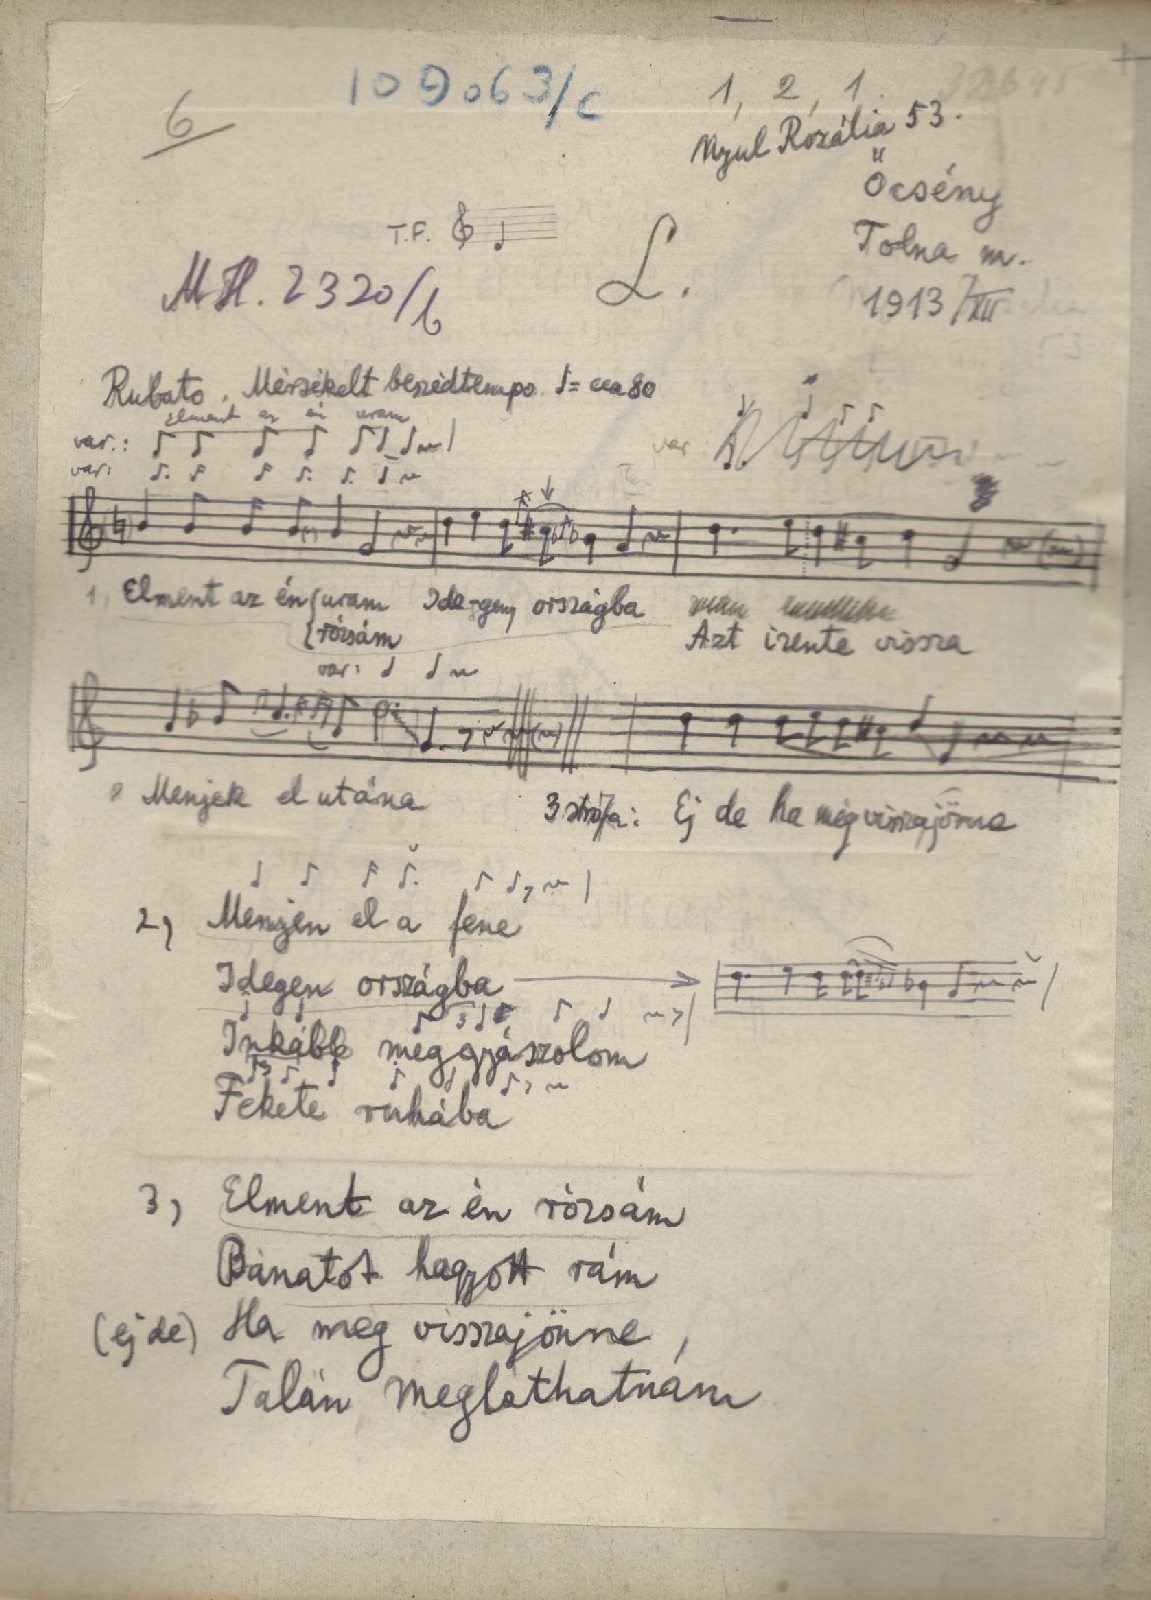 109063/c
1, 2, 1.
6
Nyul Rozália 53.
Őcsény
Tolna m.
1913/XII
T.F.
L.
M.H. 2320/b
Rubato. Mérsékelt beszédtempo. ♩= cca 80
Elment az én uram
var.:
var:
var:
1, Elment az én uram Ide-gen országba
rózsám
Azt izente vissza
var:
Menjek el utána
3 strófa: Ej de ha még visszajönne
2, Menjen el a fene
Idegen országba
Inkább meggyászolom
Fekete ruhába
3, Elment az én rózsám
Bánatot hagyott rám
(ej de) Ha még visszajönne,
Talán megláthatnám